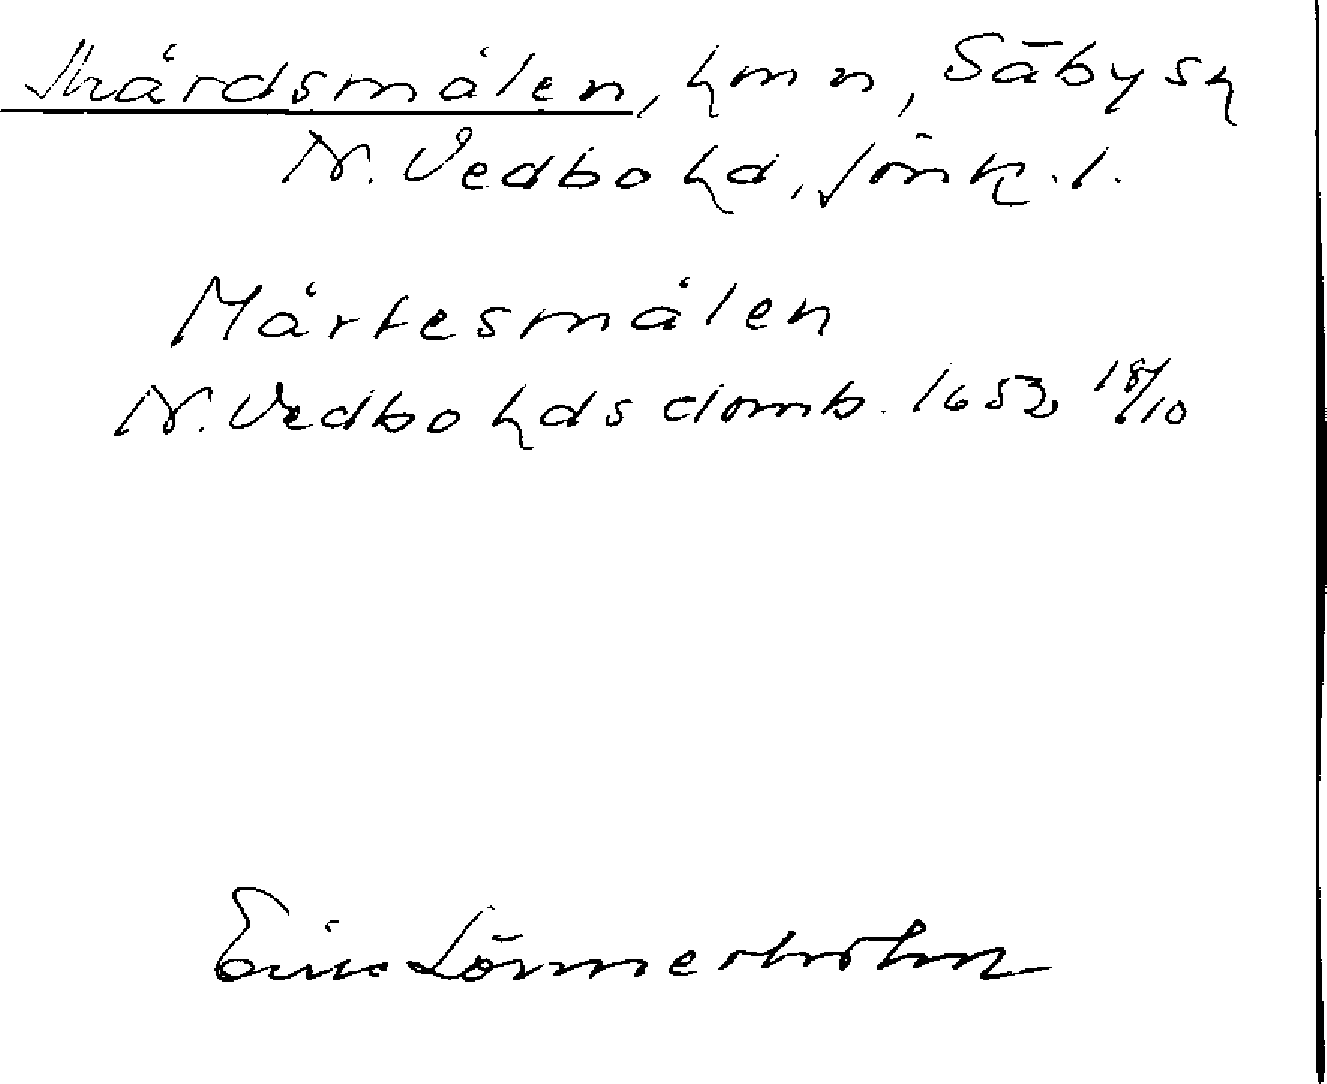 Mårdsmålen, hmn, Säby sn
N. Vedbo hd, Jönk. l.
Mårtesmålen
N. Vedbo hds domb. 1652 18/10
Eric Lönnerholm